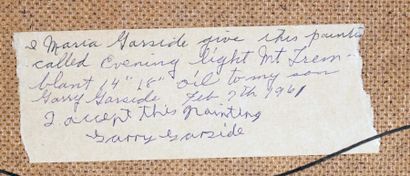 I Maria Garside give this painting
called Evening light Mt Trem-
blant 14" 18" oil to my son
Garry Garside Feb 7th 1961
I accept this painting
Garry Garside